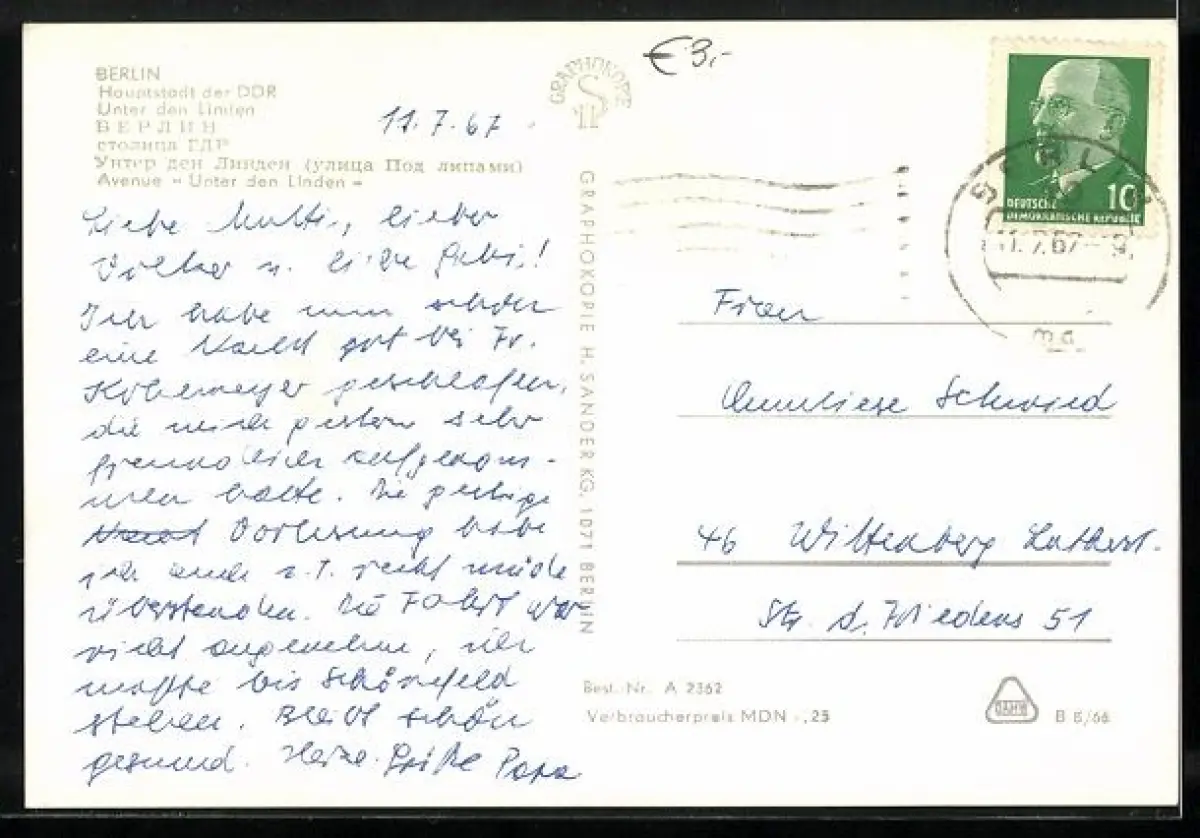 BERLIN
Hauptstadt der DDR
Unter den Linden
БЕРЛИН
столица ГДР
Унтер ден Линден (улица Под липами)
Avenue « Unter den Linden »
11.7.67
Liebe Mutti, lieber
Volker u. liebe Gabi!
Hier habe nun wieder
eine Nacht gut bei Fr.
geschlafen,
die mich gestern sehr
freundlich aufgenom-
men hatte. Die gestrige
Vorlesung habe
ich auch z.T. recht müde
überstanden. Die Fahrt war
nicht angenehm, ich
mußte bis Schönefeld
stehen. Bleibt schön
gesund. Herzl. Grüße Papa
GRAPHOKOPIE
GRAPHOKOPIE H. SANDER KG, 1071 BERLIN
€3,-
10
DEUTSCHE
DEMOKRATISCHE REPUBLIK
BERLIN
11.7.67-9
Frau
Anneliese Schmied
46 Wittenberg Lutherst.
Str. d. Friedens 51
Best. Nr. A 2362
Verbraucherpreis MDN -,25
B 8/66